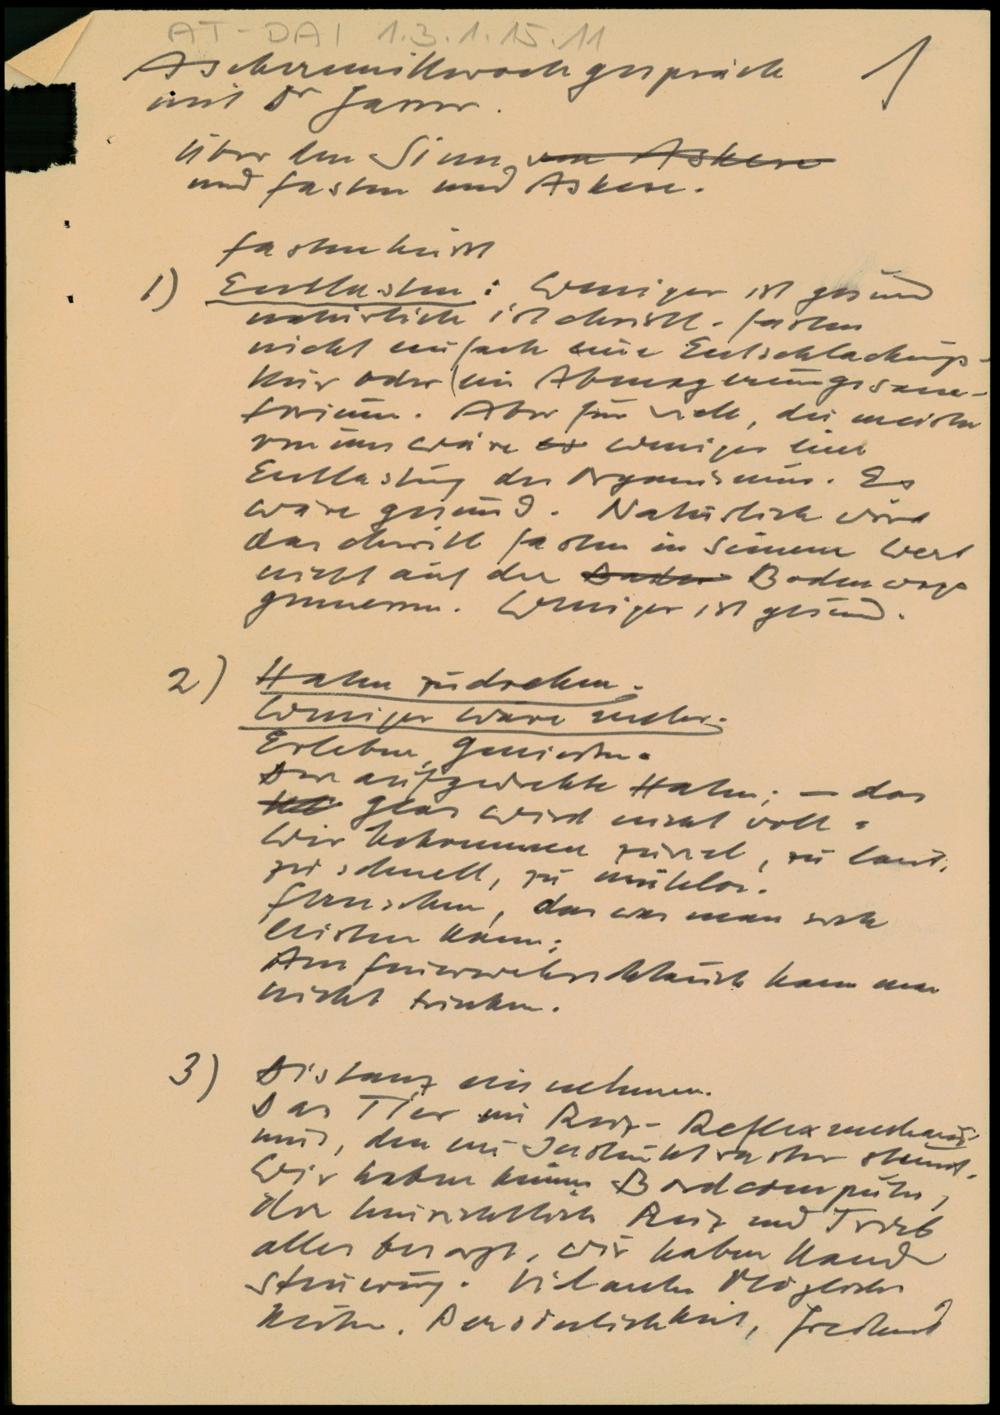 AT-DAI 1.3.1.15.11
Aschermittwochgespräch 1
mit Dr
über den Sinn von Askese
und fasten und Askese.
fasten heisst
1) Entlasten: Weniger ist gesund
natürlich ist christl. fasten
nicht einfach eine Entschlackungs-
kur oder ein Abmagerungssana-
torium. Aber für viele, die meisten
von uns wäre weniger eine
Entlastung des Organismus. Es
wäre gesund. Natürlich wird
das christl fasten in seinem Wert
nicht auf der Boden Bodenwaage
gemessen. Weniger ist gesund.
2) Hahn zudrehen.
Weniger wäre mehr.
Erleben, Geniessen.
Der aufgedrehte Hahn; – das
Glas wird nicht voll.
Wir bekommen zuviel, zu laut,
zu schnell, zu mühelos.
das was man sich
leisten kann;
Am Feuerwehrschlauch kann man
nicht trinken.
3) Distanz einnehmen.
Das Tier ein Reiz-Reflexmechanis-
mus, den ein Instinktraster steuert.
Wir haben keinen Bordcomputer,
der hinsichtlich Reiz und Trieb
alles besorgt, wir haben Hand
steuerung. Möglich
keiten. Persönlichkeit, Freiheit